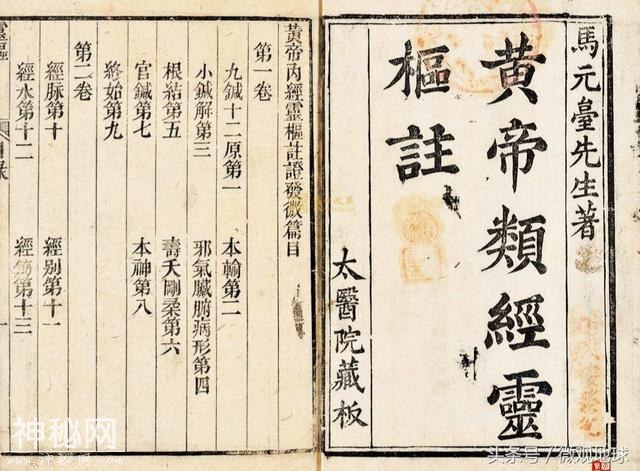 馬元臺先生著
黃帝類經靈
樞註
太醫院藏板
黃帝內經靈樞註證發微篇目
第一卷
九鍼十二原第一 本輸第二
小鍼解第三 邪氣臟腑病形第四
根結第五 壽夭剛柔第六
官鍼第七 本神第八
終始第九
第二卷
經脈第十 經别第十一
經水第十二 經筋第十三
神秘网
头条号／微观地球